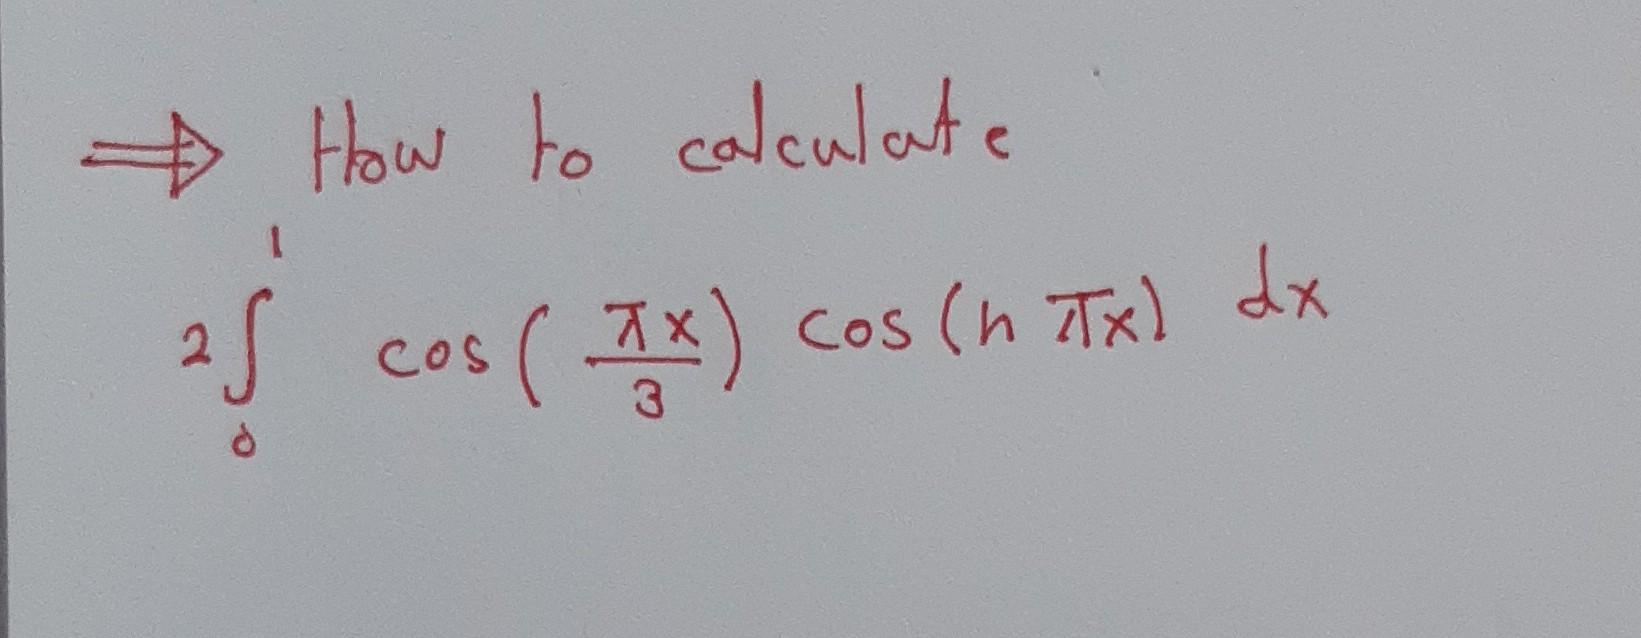 ⇒ How to calculate
2∫₀¹ cos(πx/3) cos(nπx) dx